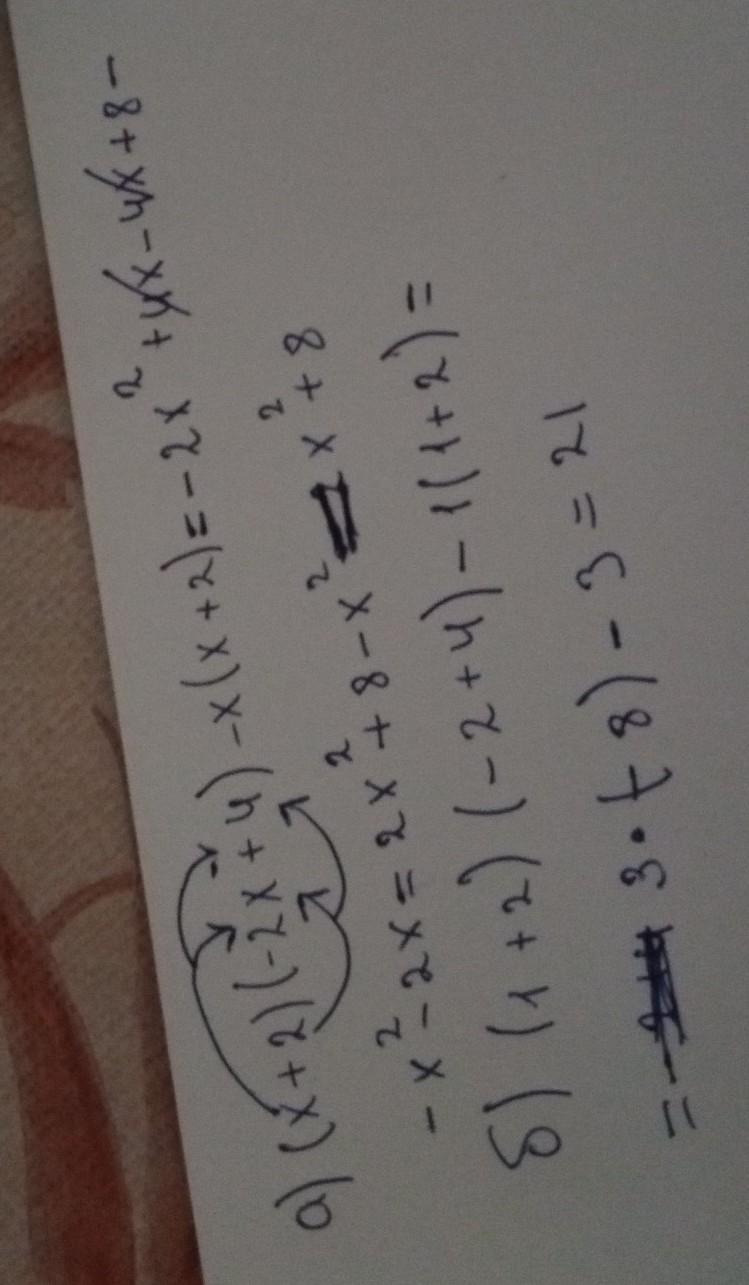 а) (x+2)(-2x+4)-x(x+2)=-2x²+4x-4x+8-
-x²-2x=2x²+8-x² x²+8
δ) (1+2)(-2+4)-1(1+2)=
= 3·(+8)-3=21